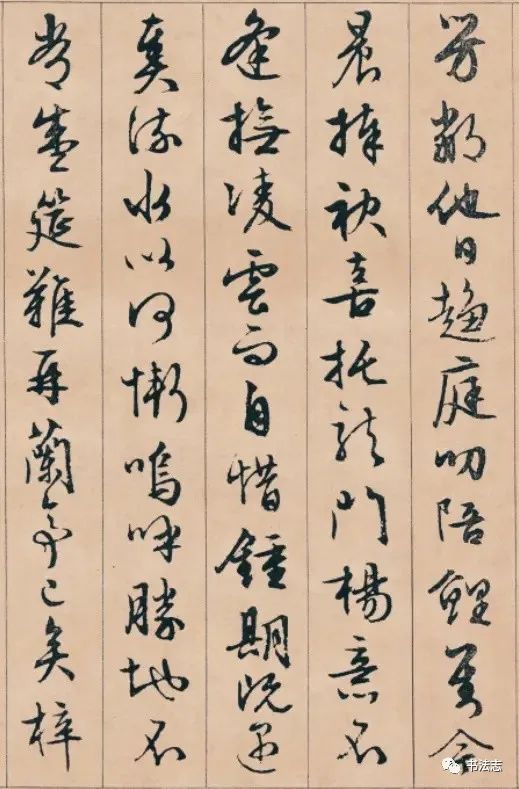 芳鄰他日趨庭叨陪鯉對今
晨捧袂喜托龍門楊意不
逢撫凌雲而自惜鍾期既遇
奏流水以何慚嗚呼勝地不
常盛筵難再蘭亭已矣梓
书法志